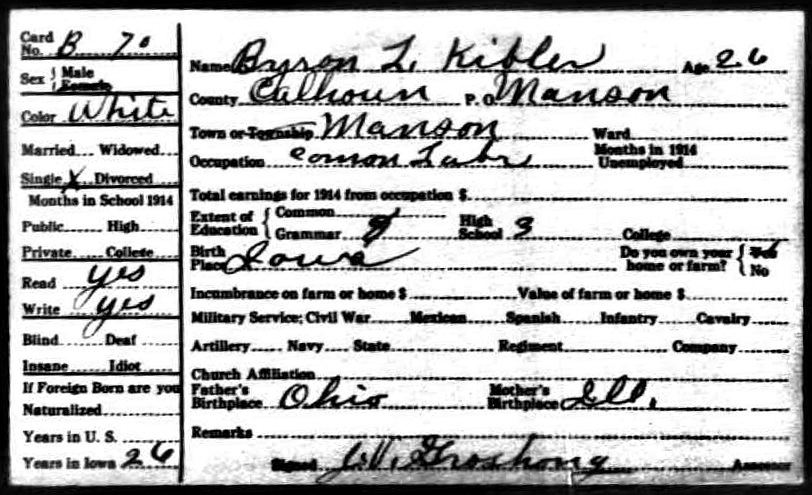 Card No. B 70
Sex { Male Female
Color White
Married Widowed
Single X Divorced
Months in School 1914
Public High
Private College
Read yes
Write yes
Blind Deaf
Insane Idiot
If Foreign Born are you
Naturalized
Years in U. S.
Years in Iowa 26
Name Byron L. Kibler Age 26
County Calhoun P. O. Manson
Town or Township Manson Ward
Occupation Comon Labr Months in 1914 Unemployed
Total earnings for 1914 from occupation $
Extent of Education { Common
Grammar 8 High School 3 College
Birth Place Iowa Do you own your home or farm? { Yes No
Incumbrance on farm or home $ Value of farm or home $
Military Service; Civil War Mexican Spanish Infantry Cavalry
Artillery Navy State Regiment Company
Church Affiliation
Father's Birthplace Ohio Mother's Birthplace Ill.
Remarks
Signed J.V. Groshong Assessor